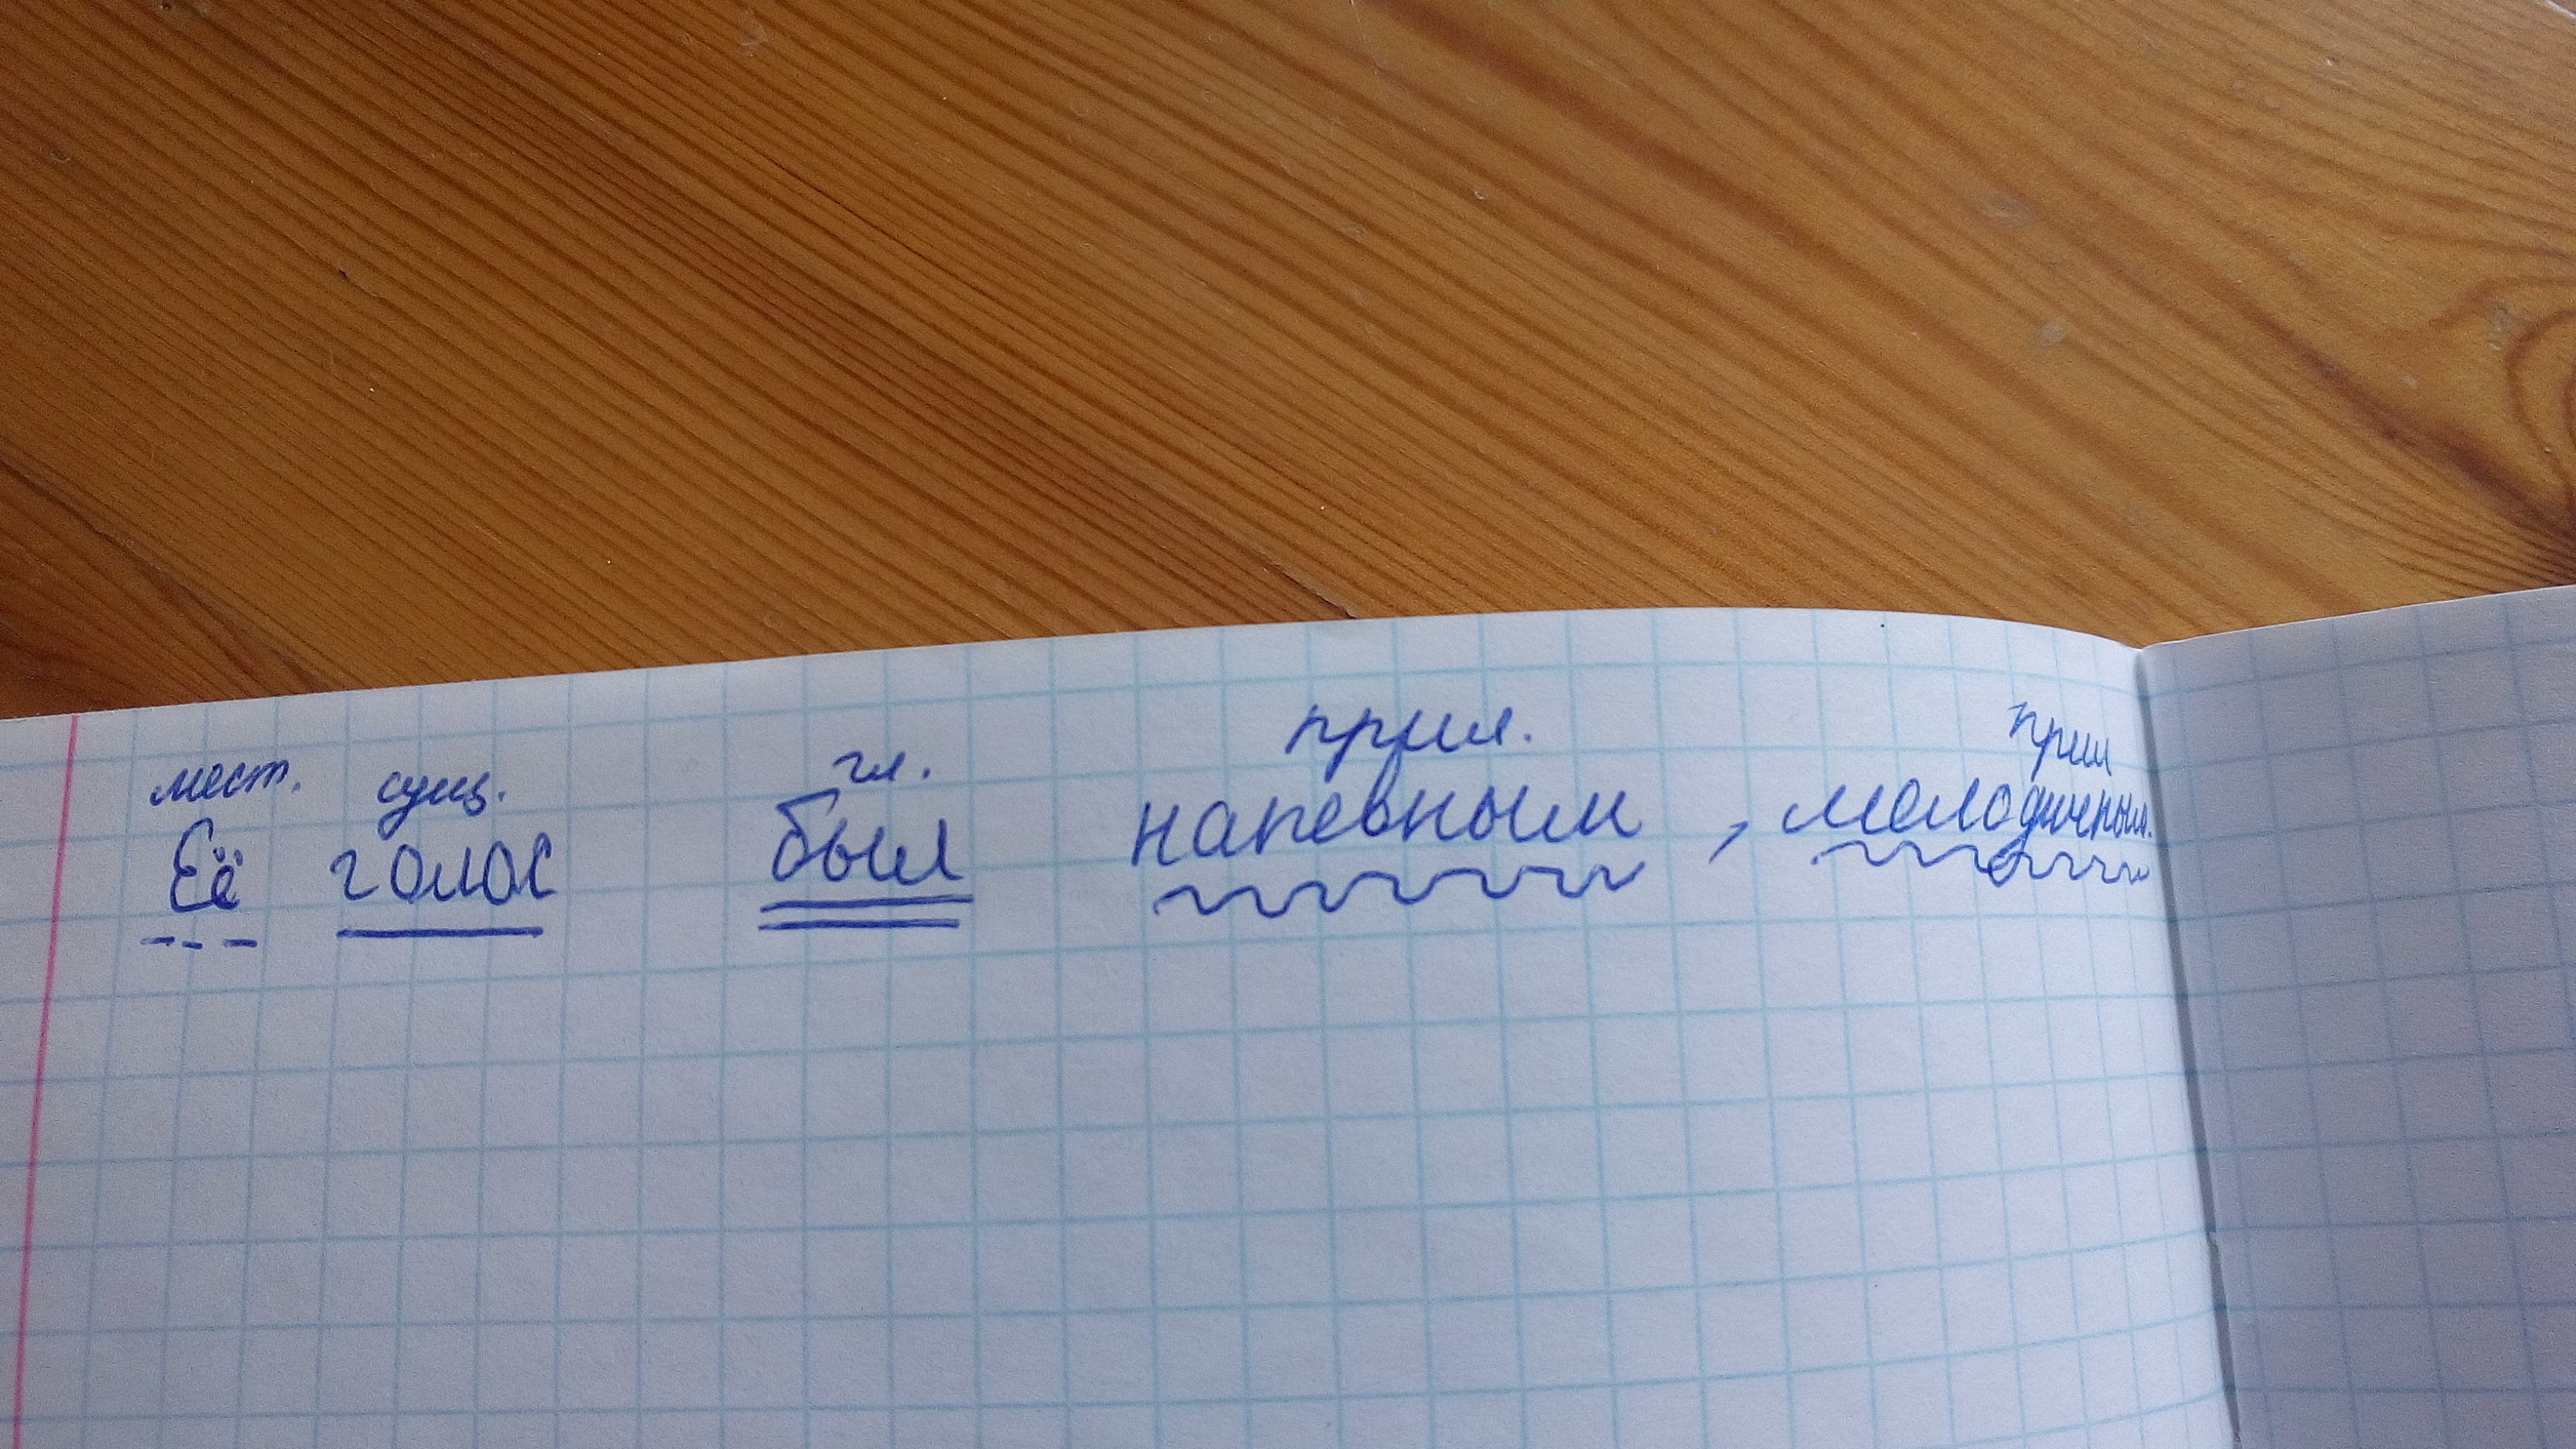 мест. сущ. гл. прил. прил
Её голос был напевным, мелодичным.